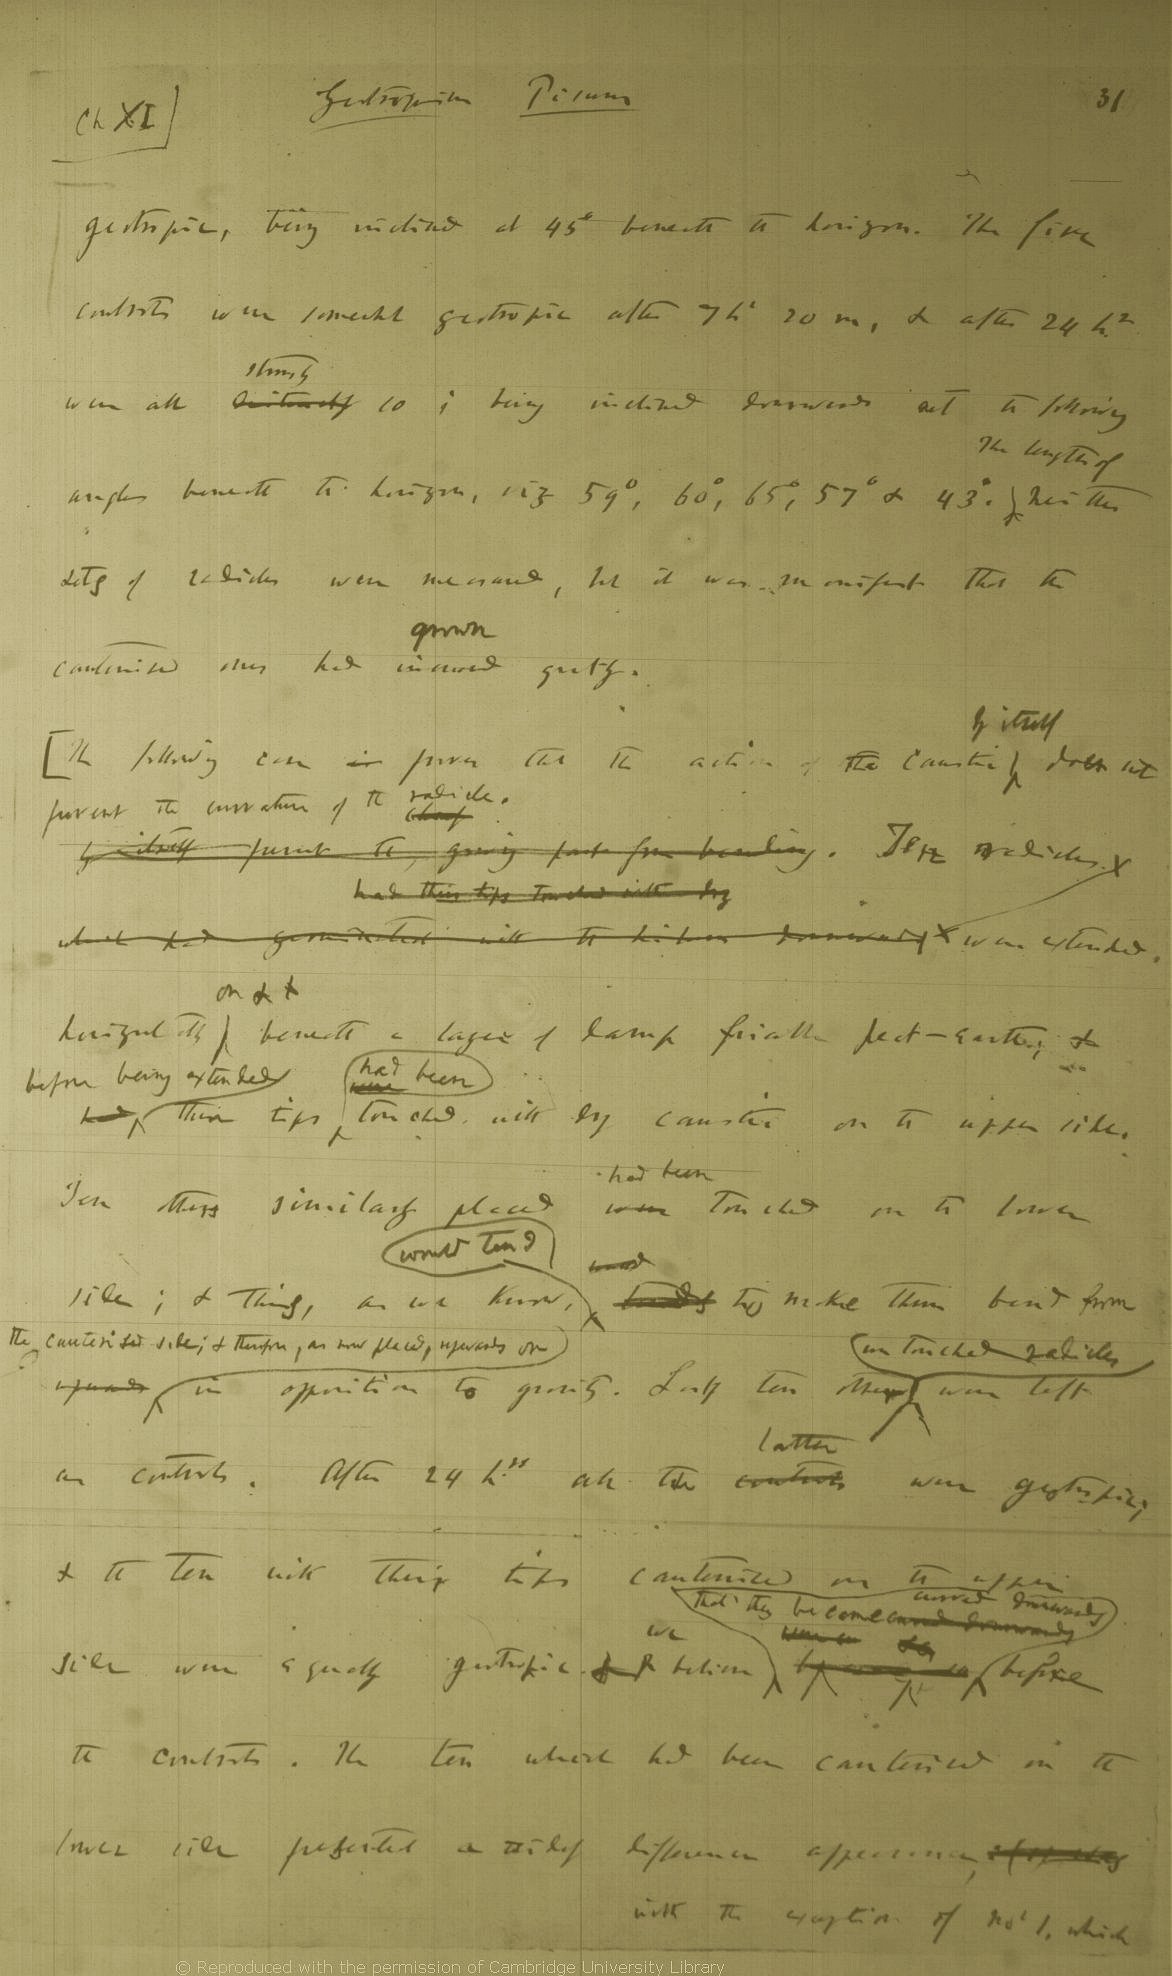 Ch XI]
Geotropism Pisum
31
geotropic, being inclined at 45° beneath the horizon. The five
controls were somewhat geotropic after 7 h. 20 m, & after 24 hrs
strongly
were all so; being inclined downwards at the following
The length of
angles beneath the horizon, viz 59°, 60°, 65°, 57° & 43°. neither
sets of radicles were measured, but it was manifest that the
grown
cauterised ones had increased greatly.
by itself
[The following case proves that the action of the caustic does not
prevent the curvature of the radicle.
by itself prevent the growing part from bending. Ten radicles
had their tips touched with dry
which had germinated with the hilum downwards were extended
on & +
horizontally beneath a layer of damp friable peat-earth; &
before being extended had been
had their tips touched with dry caustic on the upper side.
had been
Ten others similarly placed were touched on the lower
would tend
side; & this, as we know, to make them bend from
the cauterised side; & therefore, as now placed, upwards or
untouched radicles
upwards in opposition to gravity. Lastly ten others were left
latter
as controls. After 24 hrs all the controls were geotropic;
& the ten with their tips cauterised on the upper
that they become curved downwards
curved downwards
we
side were equally geotropic & we believe before
the controls. The ten which had been cauterised on the
lower side presented a widely different appearance,
with the exception of No. 1, which
© Reproduced with the permission of Cambridge University Library